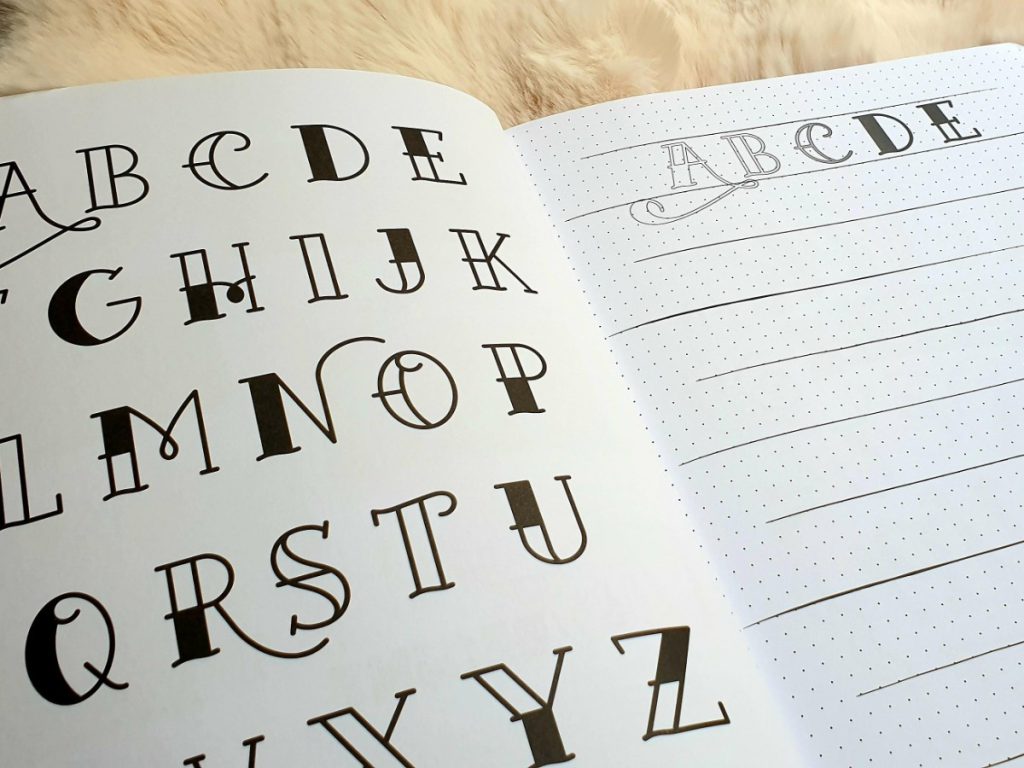 A B C D E
G H I J K
L M N O P
Q R S T U
X Y Z
A B C D E